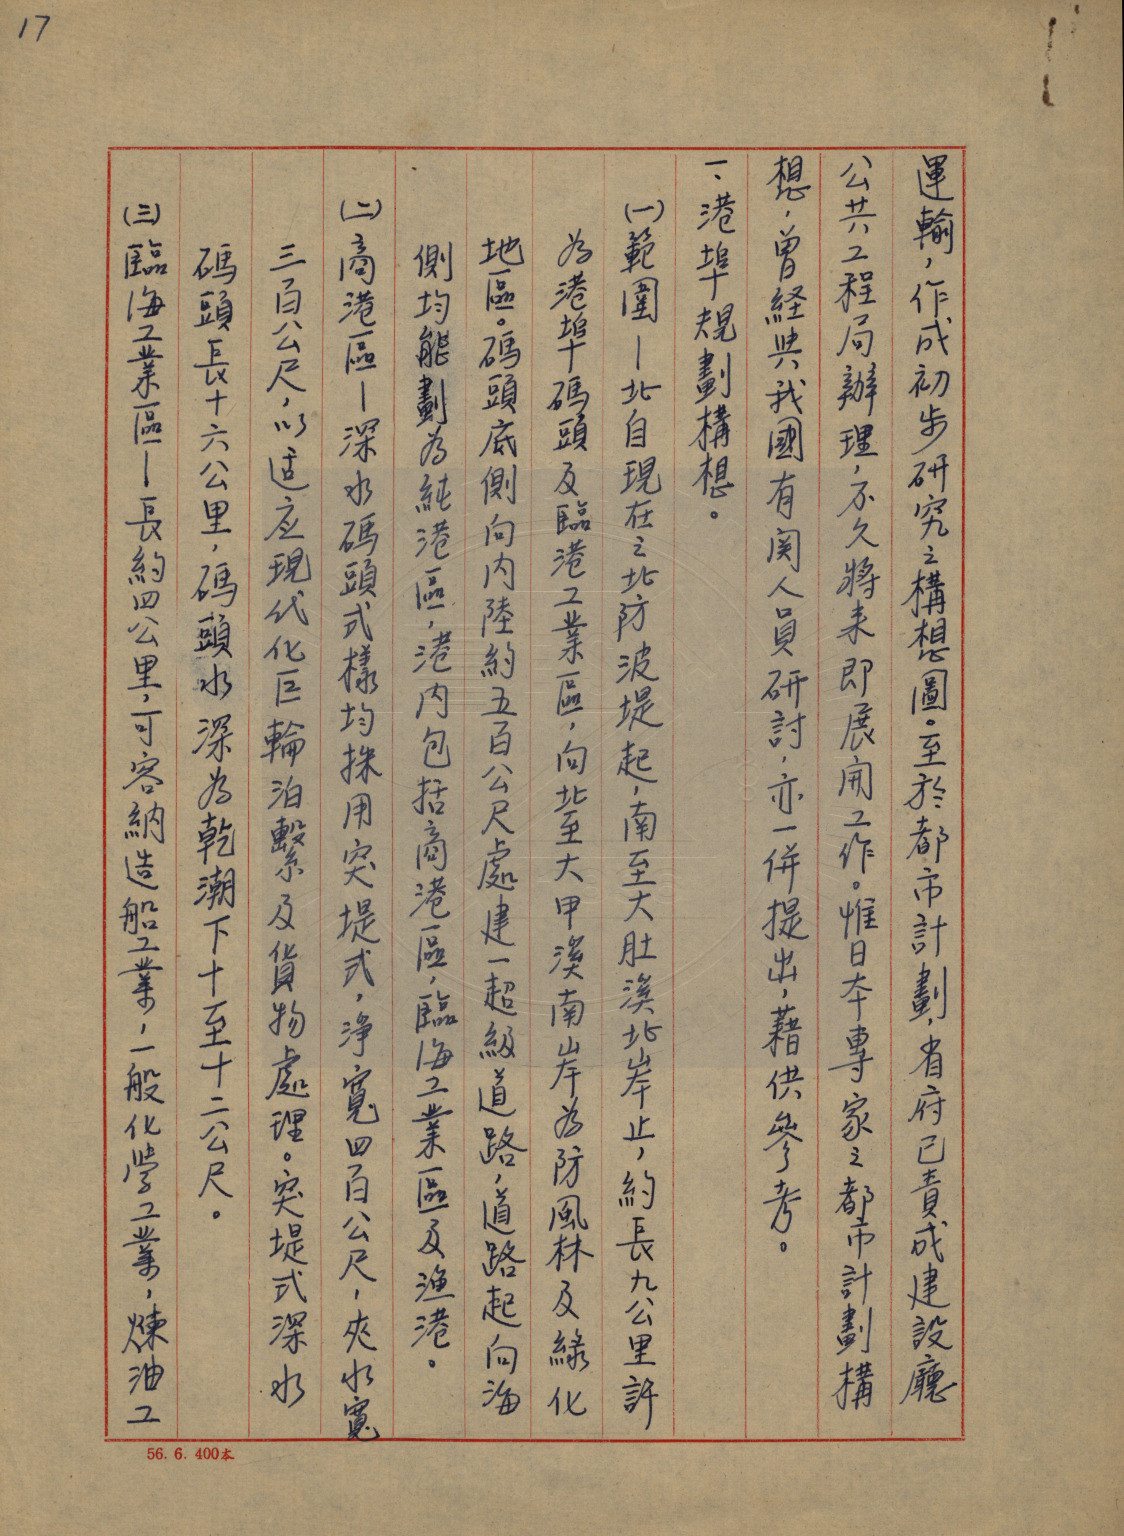 17
運輸，作成初步研究之構想圖。至於都市計劃，省府已責成建設廳
公共工程局辦理，不久將来即展開工作。惟日本專家之都市計劃構
想，曾経與我國有関人員研討，亦一併提出，藉供參考。
一、港埠規劃構想。
(一)範圍－北自現在之北防波堤起，南至大肚溪北岸止，約長九公里許
為港埠碼頭及臨港工業區，向北至大甲溪南岸為防風林及綠化
地區。碼頭底側向内陸約五百公尺處建一超級道路，道路起向海
側均能劃為純港區，港内包括商港區，臨海工業區及漁港。
(二)商港區－深水碼頭式樣均採用突堤式，净寬四百公尺，夾水寬
三百公尺，以适应現代化巨輪泊繫及貨物處理。突堤式深水
碼頭長十六公里，碼頭水深為乾潮下十至十二公尺。
(三)臨海工業區－長約四公里，可容納造船工業，一般化學工業，煉油工
56. 6. 400本